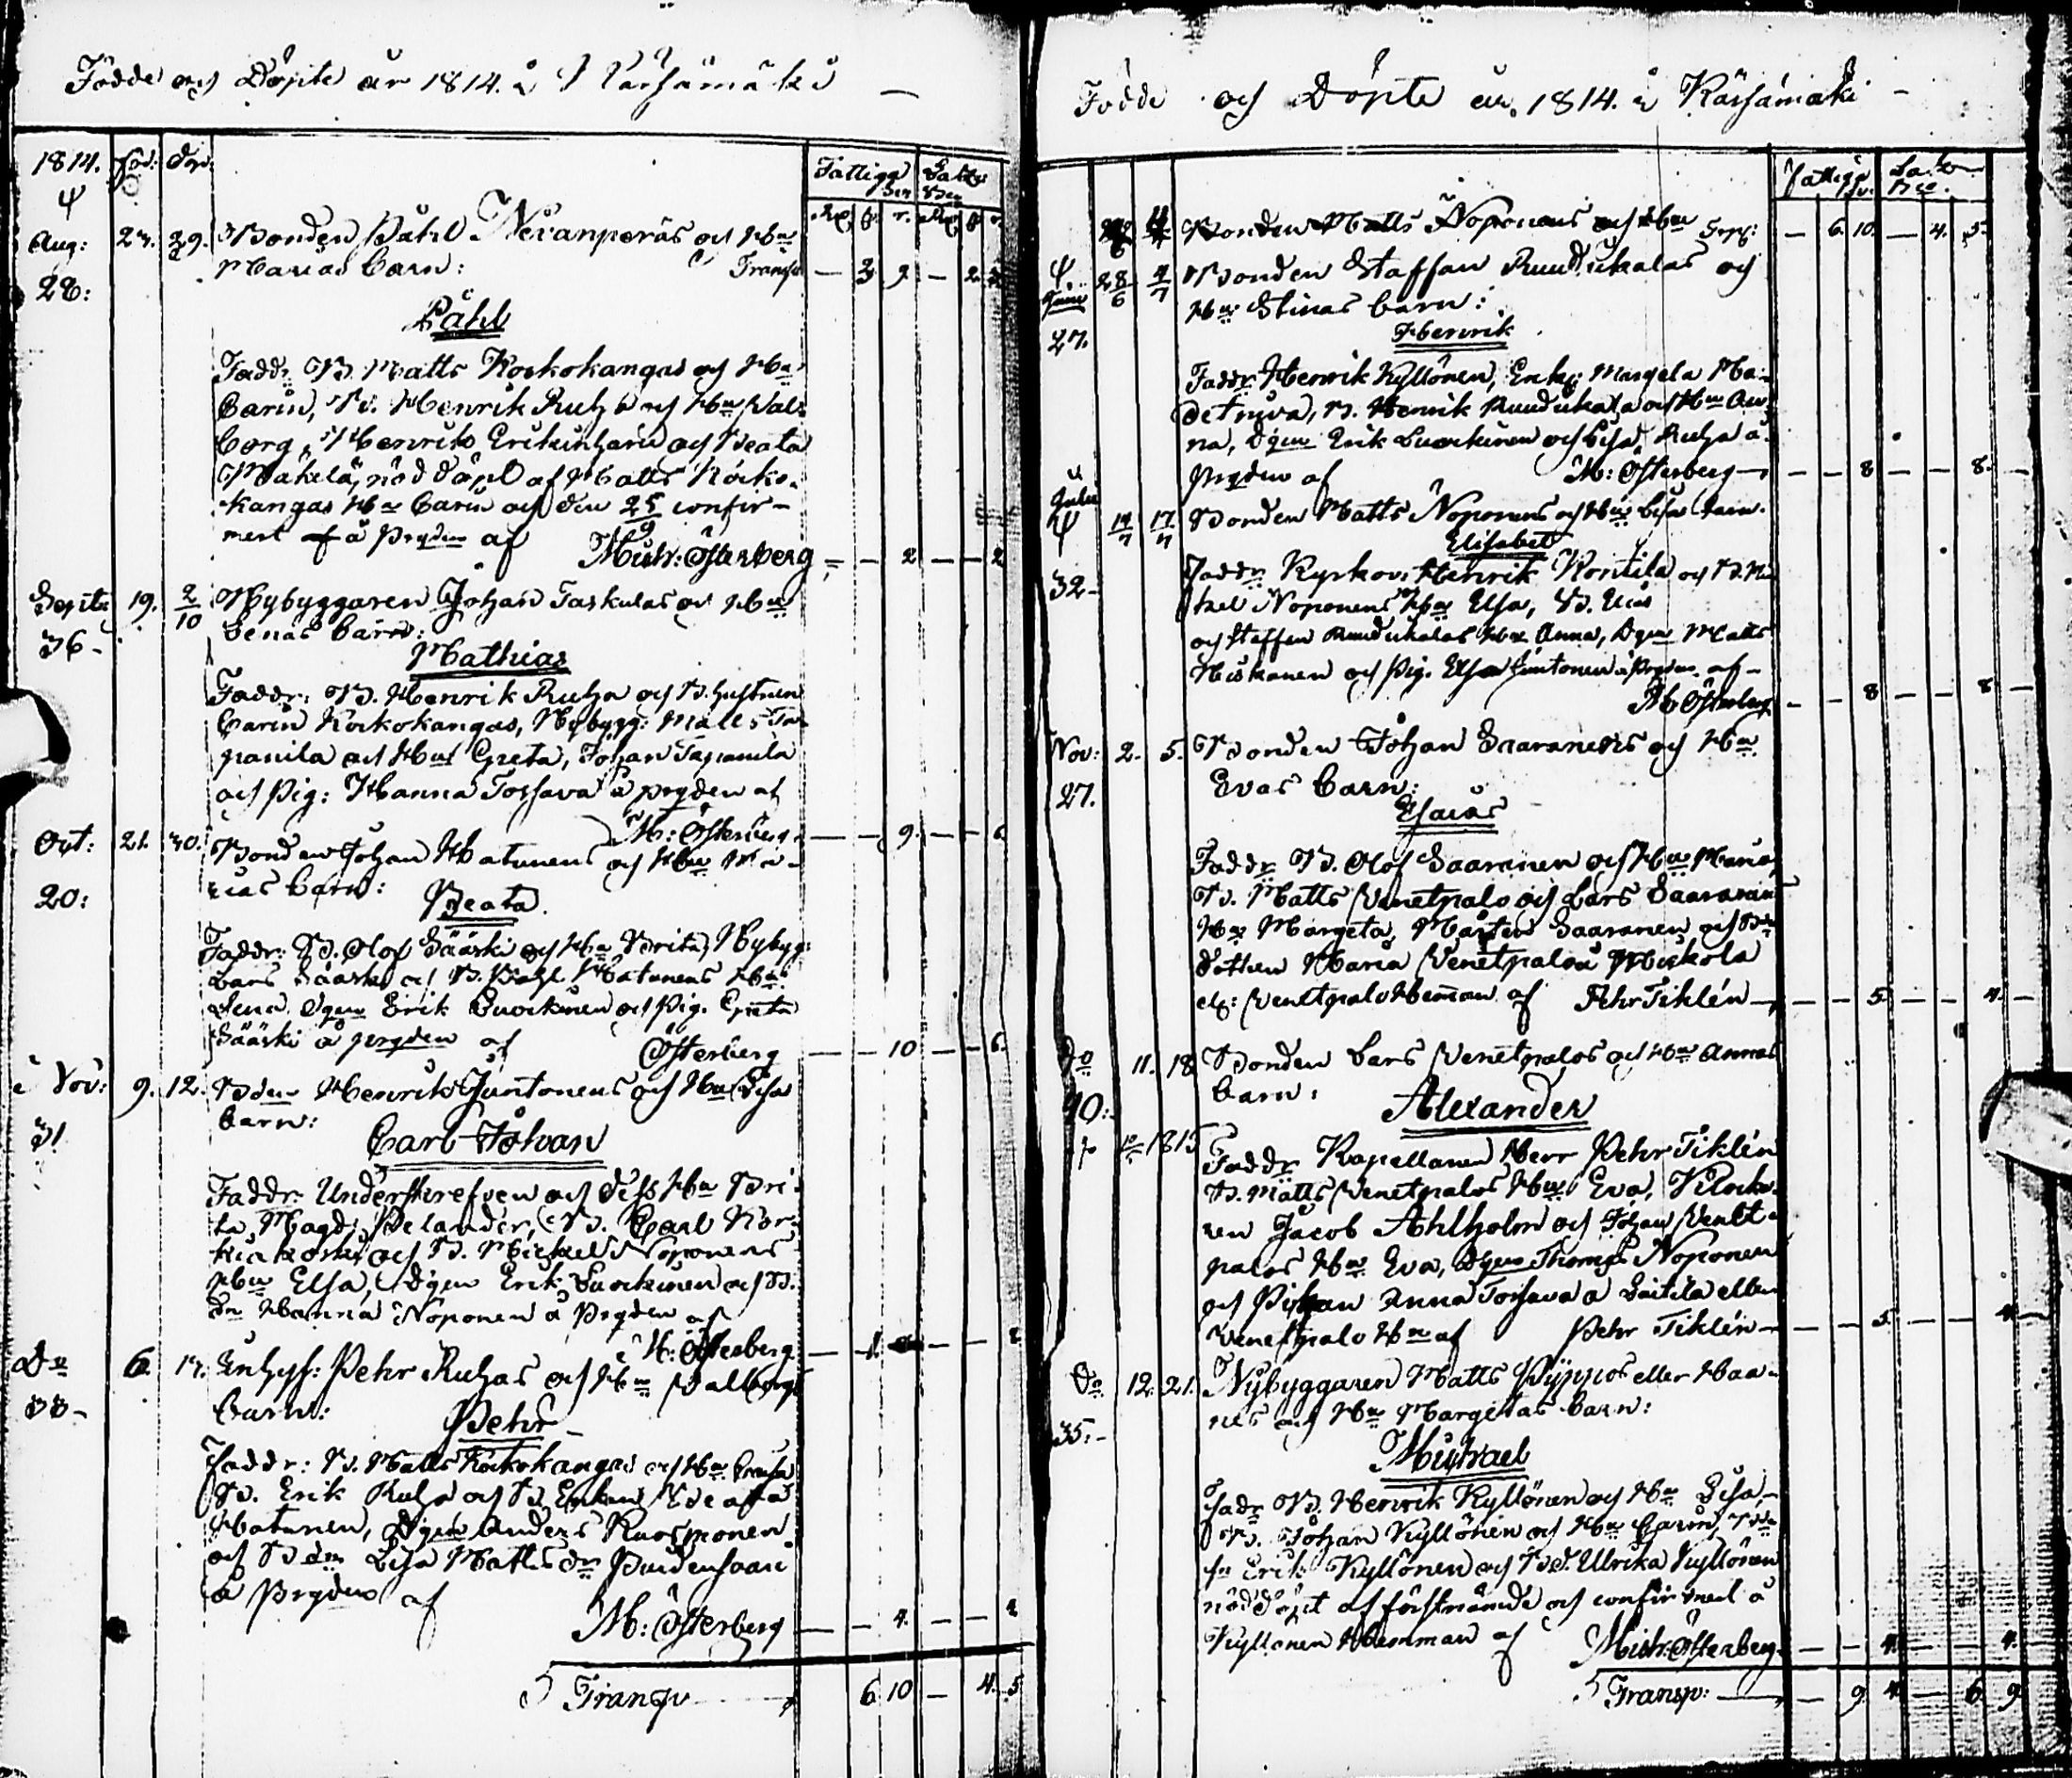 Födde och Döpte år 1814. i Kärsämäki
1814. föd: döp:
Fattigg Sakr:
Aug: 27. 29. Bonden Påhl Nevanperäs och Hu
Marias Barn: Transp — 3. 9. — 2.
28:
Påhl
Faddr. B. Matts Kockokangas och Hu
Carin, B. Henrik Ruha och Hu Wal-
borg, Henrik Erikinharju och Beata
Mäkelä, nöddöpt af Matts Kocko-
kangas Hu Carin och den 25/9 confir-
mert å Prgden af Mich: Österberg — — 2 — — 2
Septe 19. 2/10 Nybyggaren Johan Taskulas oc Hu
Lenas Barn:
36 -
Mathias
Faddr: B. Henrik Ruha och B. hustrun
Carin Kockokangas, Nybygg: Matts Ta-
panila och Hus Greta, Johan Tapanila
och Pig: Hanna Tossava å prgden af
M: Österberg — — 9. — — 6.
Oct: 21. 30. Bonden Johan Hatunens och Hu Ma-
rias Barn:
20:
Beata
Faddr: B. Olof Sääski och Hu Brita, Nybyg:
Lars Sääski och B. Påhl Hatunens Hu
Lena Dgen Erik Luockinen och Pig. Greta
Sääski å prgden af Österberg — — 10 — — 6.
Nov: 9. 12. Bden Henrik Juntonens och Hu Lisa
Barn:
31
Carl Johan
Faddr: Underskrefven och dess Hu Bri-
ta, Magd: Pelander, B. Carl Kär-
och B. Mickel Noponens
Hu Elsa, Dgen Erik Luockinen och B.
Dr Hanna Noponen å Prgden af
M: Österberg
Do 6. 17. Inhys: Pehr Ruhas och Hu Walborgs
Barn:
33 -
Pehr
Faddr: B. Matts Kockokangas och Hu
B. Erik Ruha och B. Enkan Beata
Hatunen, Dgen Anders Ruosmonen
och B dr Lisa Matts dr
å Prgden af
M: Österberg — — 4. — —
Transp 6 10 — 4. 5.
Födde och Döpte år. 1814. i Kärsämäki
Fattigg Sakr
Bonden Matts Noponens och Hu — 6. 10. — 4. 5.
Juni 28/6 4/7 Bonden Staffan Ruudukalas och
Hu Stinas Barn:
27.
Henrik
Faddr Henrik Kyllönen, Enk: Margeta Ha-
B. Henrik Ruudukala och Hu An-
na, Dgen Erik Luockinen och Lisa Ruha å
Prgden af M: Österberg — — 8 — — 8. —
Julii 14/7 17/7 Bonden Matts Noponens och Hu Lisas Barn.
Elisabet
32 -
Faddr Kyrkov: Henrik Kontila och B. Mi-
kel Noponens Hu Elsa, B. Elias
och Staffan Ruudukalas Hu Anna, Dgen Matts
Hiskanen och Pig. Elsa Juntonen å Prgden af -
M Österberg — — 8 — — 8 —
Nov: 2. 5. Bonden Johan Saaranens och Hu
Evas Barn:
27.
Esaias
Faddr B. Olof Saaranen och Hu Maria,
B. Matts Venetpalo och Lars Saaranens
Hu Margeta, Mårten Saaranen och B.
dottren Maria Venetpalo å Miskola
elr: Venetpalo Hemman af Pehr Tiklén — — 5. — — 4. —
Do 11. 18 Bonden Lars Venetpalos och Hu Annas
Barn:
40:
Alexander
1815
Faddr Kapellanen Herr Pehr Tiklén
B. Matts Venetpalos Hu Eva, Klocka-
ren Jacob Ahlholm och Johan Venet-
palos Hu Eva, Dgen Thomas Noponen
och Pigan Anna Tossava å Laitila eller
Venetpalo Hn af Pehr Tiklén — — 5. — — 4.
Do 12. 21. Nybyggaren Matts Pyppos eller Haa-
nes och Hu Margetas Barn:
35: -
Michael
Fadr B. Henrik Kyllönen och Hu Lisa,
B. Johan Kyllönen och Hu Carin,
sn Erik Kyllönen och Bd. Ulrika Kyllönen
nöddöpt af förstnämde och confirmed å
Kyllönen Hemman af Mich: Österberg — — 4 — — 4.
Transp: — — 9. 4. — 6. 9